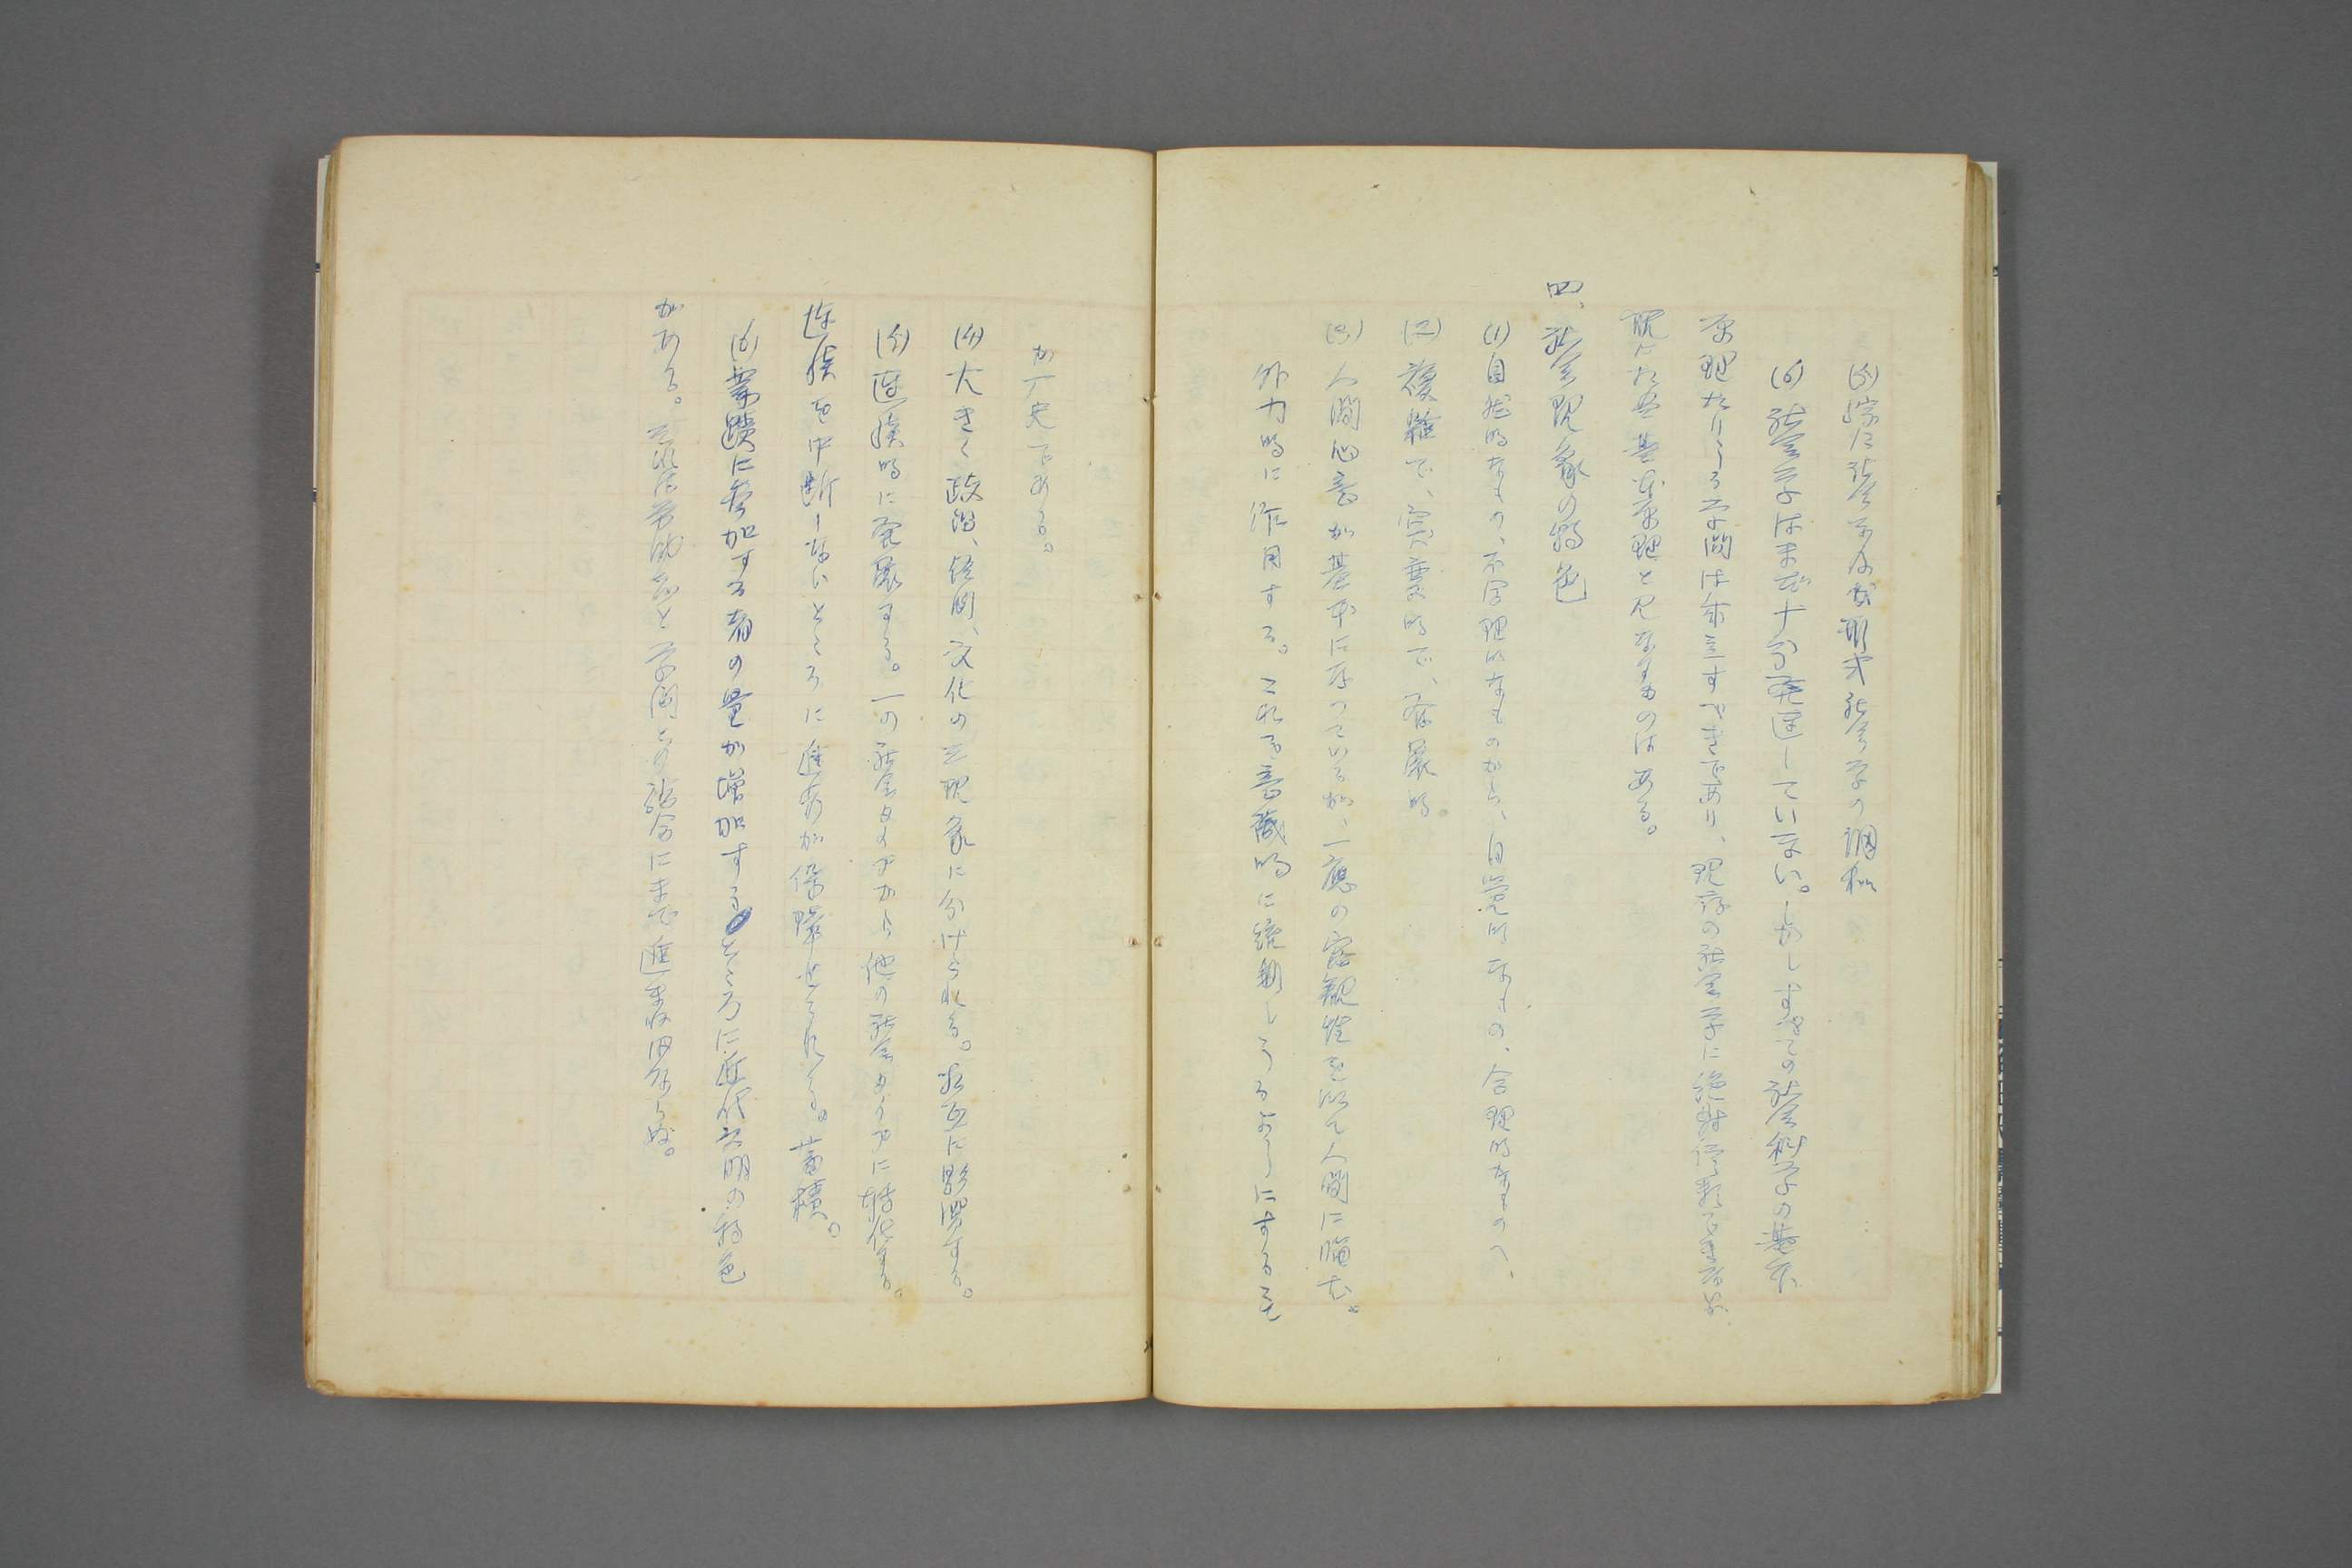 (5) 綜合社会学及び形式社会学の調和
(6) 社会学はまだ十分発達していない。しかしすべての社会科学の基本
原理たりうる学問は成立すべきであり、現存の社会学に絶対信頼できないが
既に基本原理と見なすものはある。
四、社会現象の特色
(1) 自然的なもの、不合理的なものから、自覚的なもの、合理的なものへ、
(2) 複雑で、変的で、発展的。
(3) 人間の意が基本に存っているが、一應の客観性を以て人間に臨む。
外力的に作用する。これを意識的に統制しうるようにするこ
が厂史である。
(4) 大きく政治、経済、文化の三現象に分けられる。相互に影響する。
(5) 連続的に発展する。一の社会タイプから他の社会タイプに転化する。
連続を中断しないところに進歩が保障せられる。蓄積。
(6) 業蹟に参加する者の量が増加するところに近代文明の特色
がある。と学問との結合にまで進まねばならぬ。